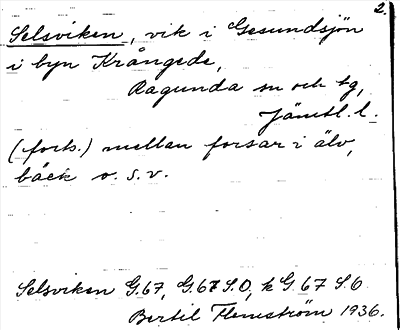 2.
Selsviken, vik i Gesundsjön
i byn Krångede,
Ragunda sn och tg,
Jämtl. l.
(forts.) mellan forsar i älv,
bäck o. s. v.
Selsviken G. 67, G. 67 S. O, k G 67 S. O
Bertil Flemström 1936.